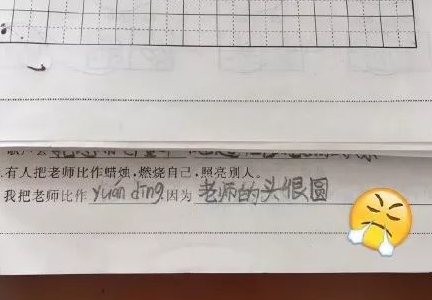 .有人把老师比作蜡烛,燃烧自己,照亮别人。
我把老师比作 yuán dīng,因为 老师的头很圆